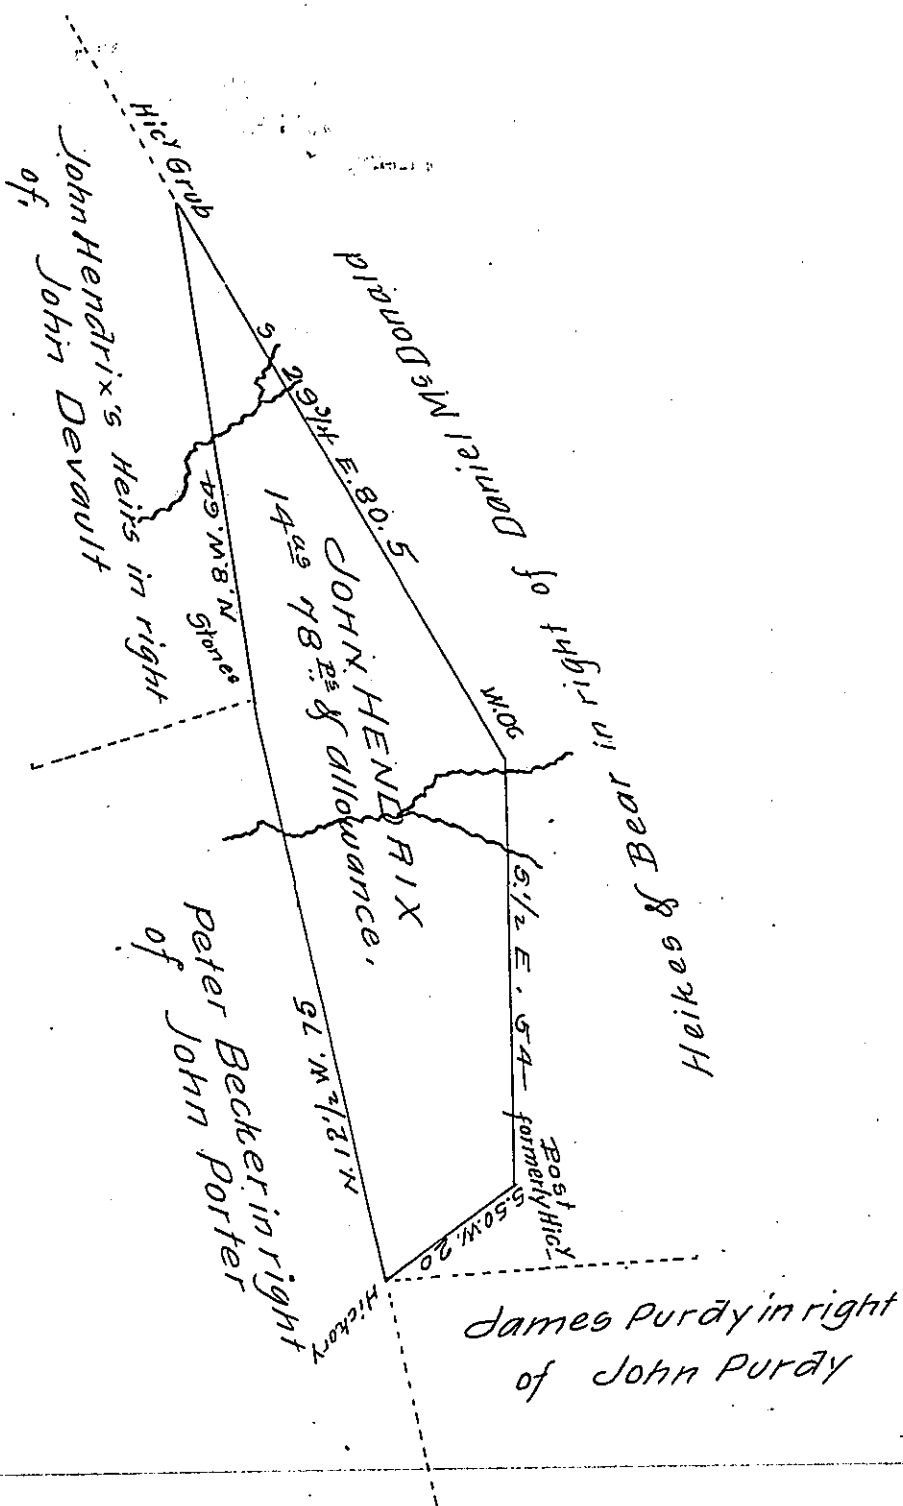 Hicʸ Grub
John Hendrix's Heirs in right
of John Devault
S 29 3/4 E. 80.5
Heikes & Bear in right of Daniel McDonald
N. 8 W. 64
Stones
JOHN HENDRIX
14 ᵃˢ 78 ᵖˢ & allowance.
W.O.
S. 1/2 E. 54
Post
formerly Hicʸ
S. 50 W. 20
Hickory
N. 12 1/2 W. 76
Peter Becker in right
of John Porter
James Purdy in right
of John Purdy